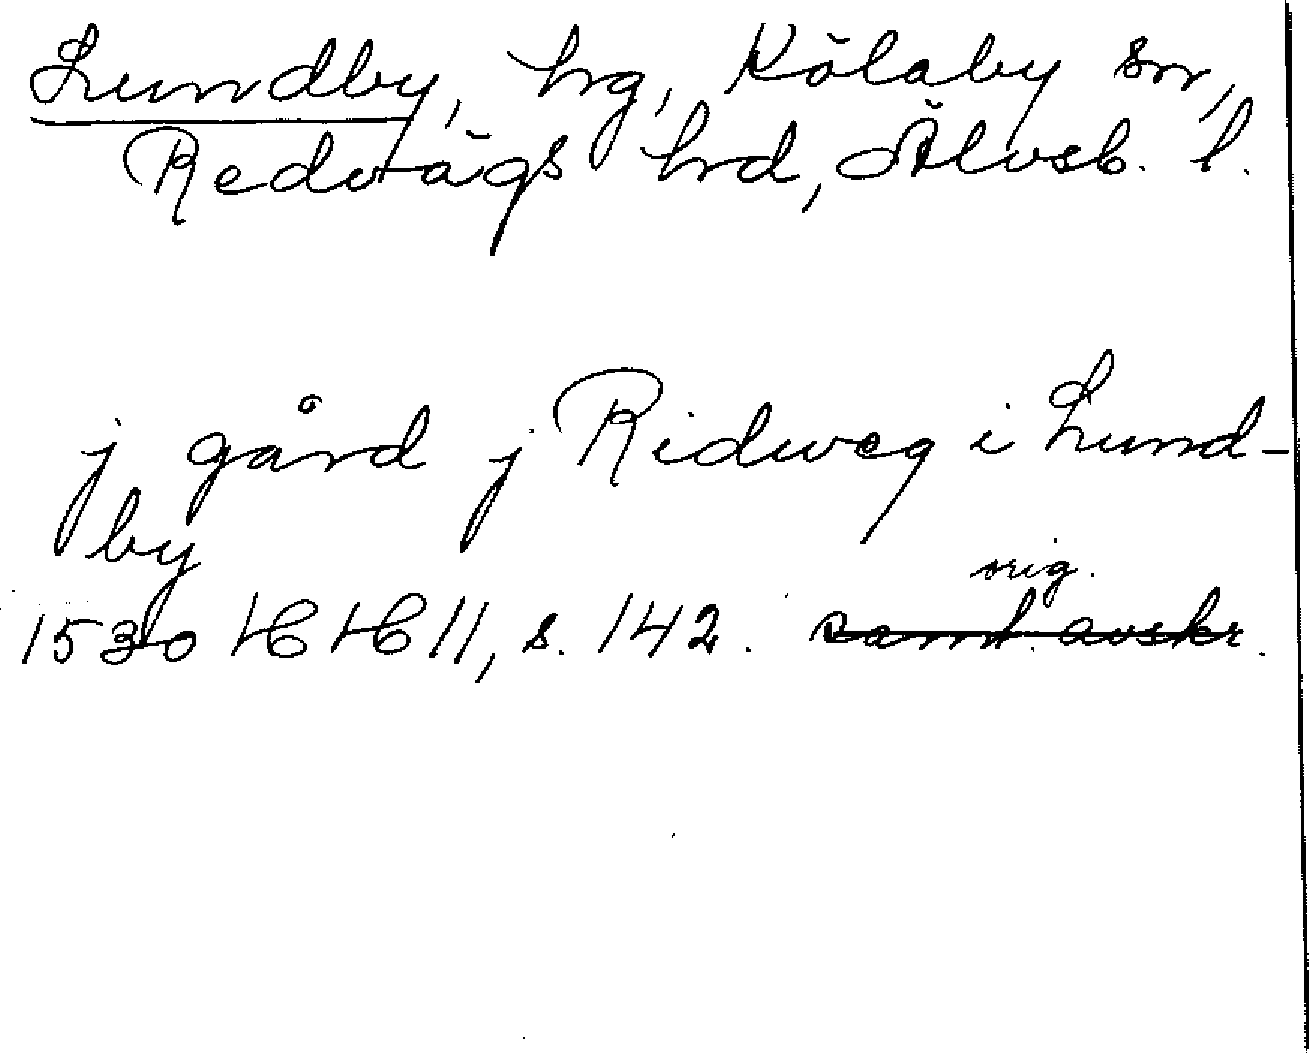 Lundby, hg, Kölaby sn,
Redvägs hd, Älvsb. l.
j gård j Ridweg i Lund-
by
orig.
1530 HH 11, s. 142. samt. avskr.